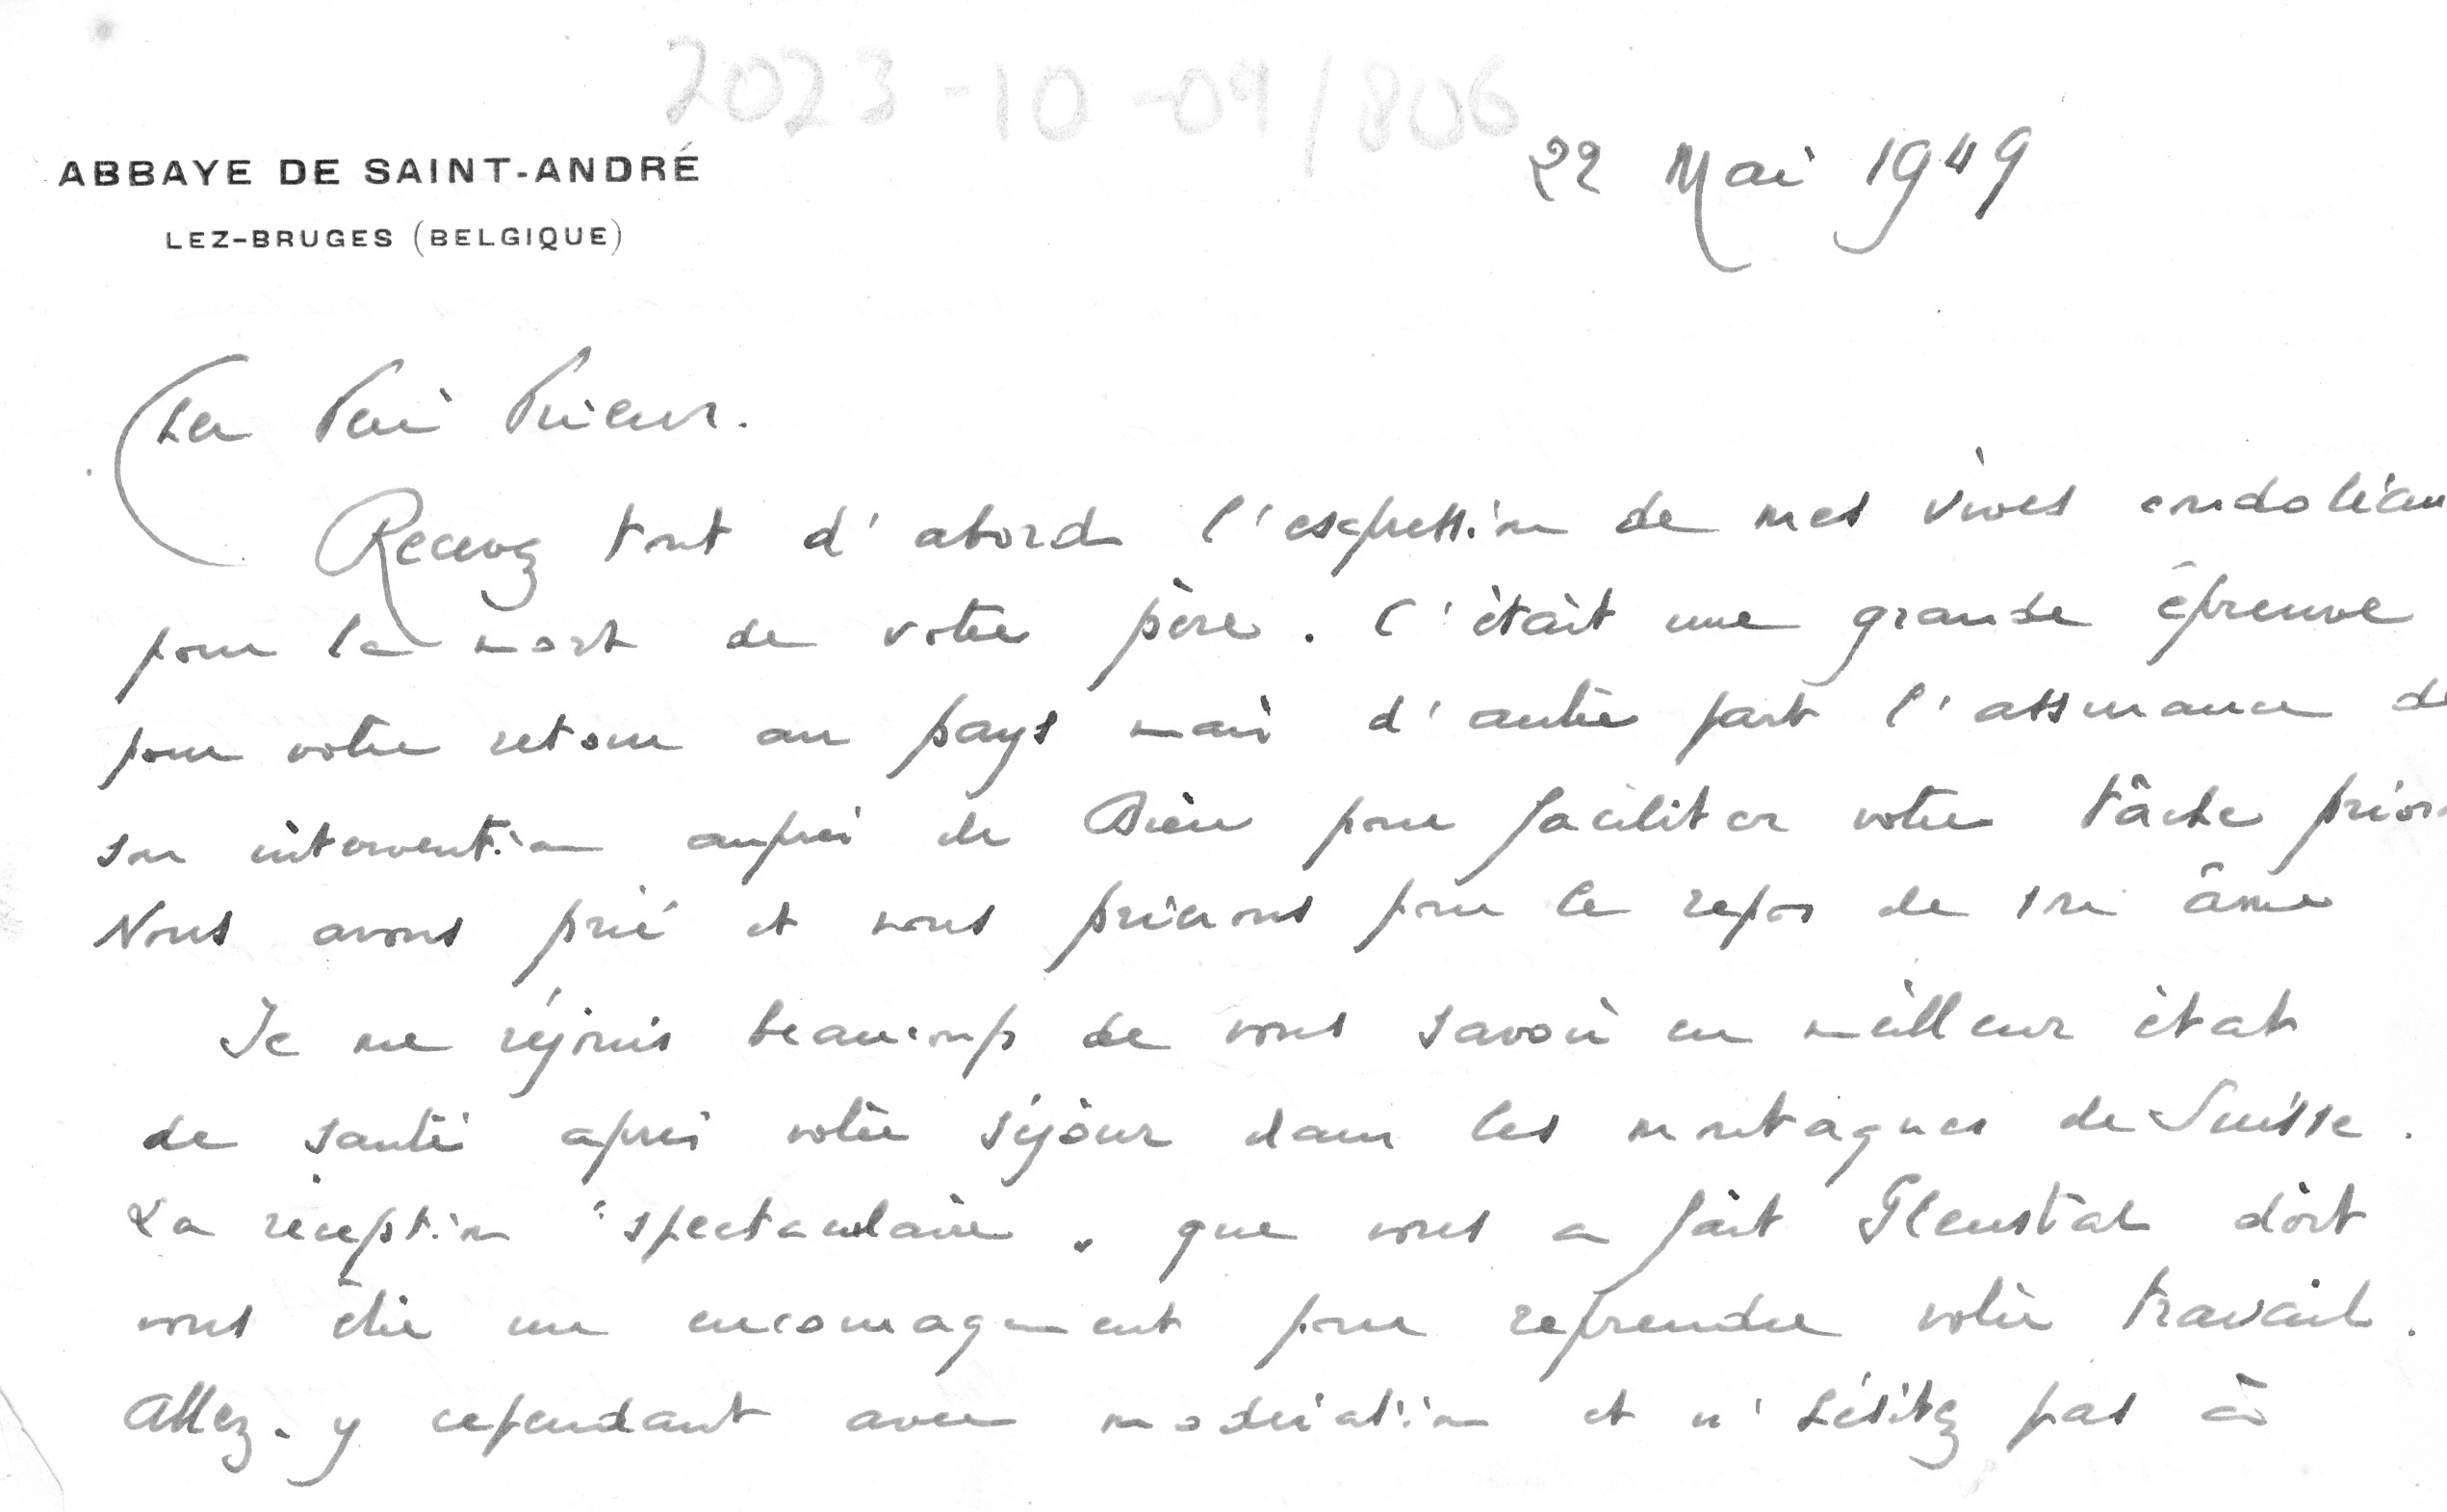 2023-10-09/806
ABBAYE DE SAINT-ANDRÉ
22 Mai 1949
LEZ-BRUGES (BELGIQUE)
Cher Père Prieur.
Recevez tout d'abord l'expression de mes vives condoléan
pour la mort de votre père. C'était une grande épreuve
pour votre retour au pays mais d'autre part l'assurance de
son intervention auprès de Dieu pour faciliter votre tâche prior
Nous avons prié et nous prierons pour le repos de son âme
Je me réjouis beaucoup de vous savoir en meilleur état
de santé après votre séjour dans les montagnes de Suisse.
La réception "spectaculaire" que vous a fait Gleustal doit
vous être un encouragement pour reprendre votre travail.
Allez-y cependant avec modération et n'hésitez pas à